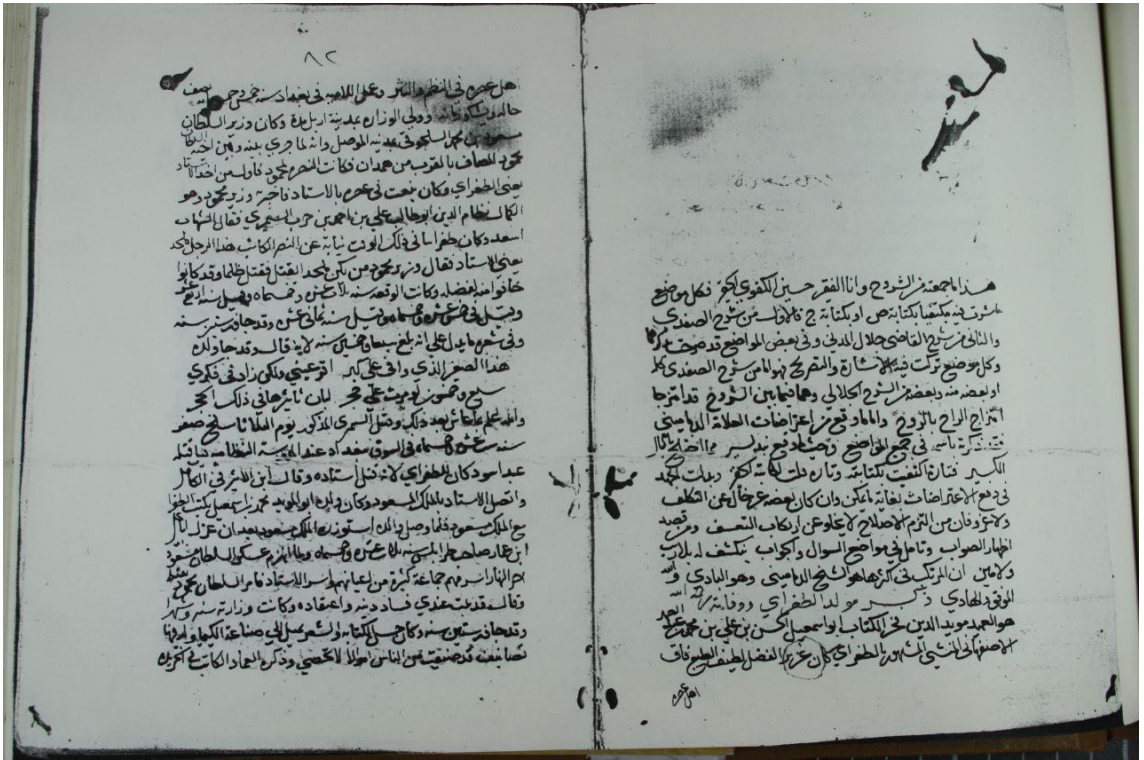 هذا ما جمعته من الشروح وانا الفقير حسين الكفوي فكل موضع
فيه مكتفيا بكتابة ص او بكتابة ج فالاول من شرح الصفدي
والثاني من شرح القاضي جلال المدني وفي بعض المواضع قد صرحت
وكل موضع تركت فيه الاشارة والتصريح فهو اما من شرح الصفدي كله
او بعضه منه وبعضه من الشرح الجلالي وهما فيما بين الشروح قد امتزجا
امتزاج الراح بالروح واما دفع من اعتراضات العلامة الدماميني
في جميع المواضع وحيث ادفع
الكبير فتارة اكتفيت بكتابته وتارة
في دفع الاعتراضات لغاية ما يمكن وان كان بعضه غير خال عن التكلف
ولا غرو فان من التزم الاصلاح لا يخلو عن ارتكاب التعسف ومن قصد
اظهار الصواب وتامل في مواضع السوال والجواب ينكشف له بلا ريب
ولا مين ان المرتكب في اكثرها هو الشيخ الدماميني وهو البادي والله
الموفق الهادي ذكر مولد الطغراي ووفاته رحمه الله
هو العميد مويد الدين فخر الكتاب ابو اسمعيل الحسن بن علي بن محمد بن عبد الصمد
الاصفهاني المنشي المشهور بالطغراي كان عزيز الفضل لطيف الطبع فاق
اهل عصره
٨٢
هل عصره في النظم والنثر وعمل اللامية في بغداد سنة خمس وخمس يصف
حاله ويشكو زمانه وولي الوزارة بمدينة اربل مدة وكان وزير السلطان
مسعود بن محمد السلجوقي بمدينة الموصل وانه لما جري بينه وبين اخيه السلطان
محمود المصاف بالقرب من همدان فكانت النصرة لمحمود فاول من اخذ الاستاد
يعني الطغراي وكان ينعت في عصره بالاستاد فاخبر به وزير محمود وهو
الكمال نظام الدين ابو طالب علي بن احمد بن حرب السميرمي فقال الشهاب
اسعد وكان طغرايا في ذلك الوقت نيابة عن النصير الكاتب هذا الرجل ملحد
يعني الاستاد فقال وزير محمود من يكن ملحدا يقتل فقتل ظلما وقد كانوا
خافوا منه لفضله وكانت الوقعة سنة ثلاث عشر وخمسماة وقيل سنة اربع عشر
وقيل في خمس عشره وقيل سنة ثماني عشر وقد جاوز ستين سنه
وفي شعره ما يدل علي انه بلغ سبعا وخمسين سنة لانه قال وقد جاه ولد
هذا الصغير الذي وافى على كبر اقر عيني ولكن زاد في فكري
سبع وخمسون لو مرت على حجر لبان تاثيرها في ذلك الحجر
والله اعلم بما عاش بعد ذلك وقتل السميرمي المذكور يوم الثلاثا سلخ صفر
سنة ست عشره وخمسماة في السوق ببغداد عند المدرسة النظامية قيل قتله
عبد اسود كان للطغراي لانه قتل استاده وقال ابن الاثير في الكامل
واتصل الاستاد بالملك المسعود وكان ولده ابو المويد محمد بن اسمعيل يكتب الطغرا
مع الملك مسعود فلما وصل والده استوزره الملك مسعود بعد ان عزل ابا علي
ابن عمار صاحب طرابلس سنة ثلاث عشره وخمسماه ولما انهزم عسكر السلطان مسعود
اخر النهار اسر منهم جماعة كثيرة من اعيانهم واسر الاستاد فامر السلطان محمود بقتله
وقال قد ثبت عندي فساد دينه واعتقاده وكانت وزارته سنة وشهرا
وقد جاوز ستين سنة وكان حسن الكتابة والشعر يميل الي صناعة الكيميا وله فيها
تصانيف قد ضيعت من الناس اموالا لا تحصي وذكره العماد الكاتب في الخريدة